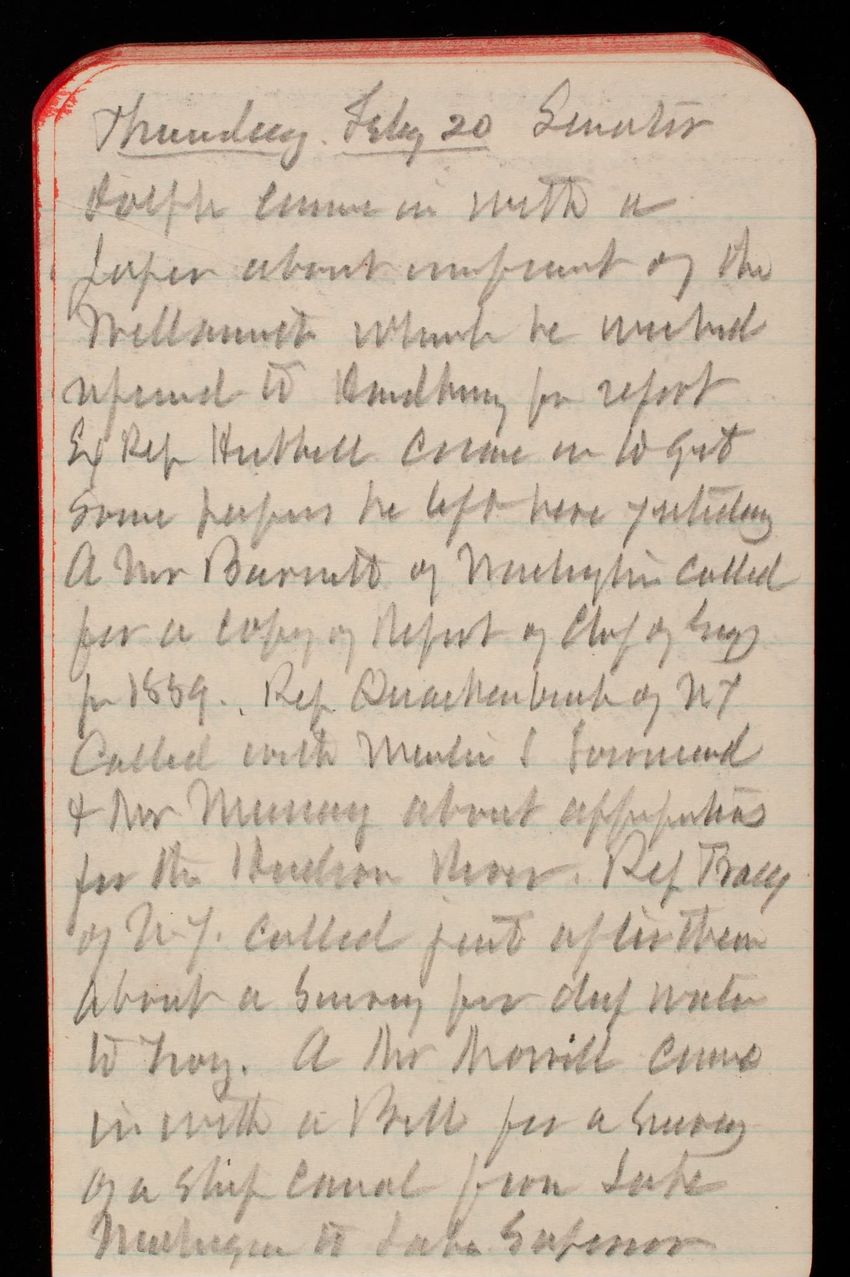 Thursday. Feby 20 Senator
Dolph came in with a
paper about impvmt of the
Willamette which he wished
referred to Handbury for report
Ex Rep Hubbell came in to get
some papers he left here yesterday
A Mr Barnett of Washington called
for a copy of Report of Chf of Engs
for 1889. Rep Quackenbush of NY
Called with Martin I Townsend
& Mr Murray about appropriations
for the Hudson River. Rep Tracey
of N.Y. called just after them
about a Survey for deep water
to Troy. A Mr Morrill came
in with a Bill for a Survey
of a Ship Canal from Lake
Michigan to Lake Superior